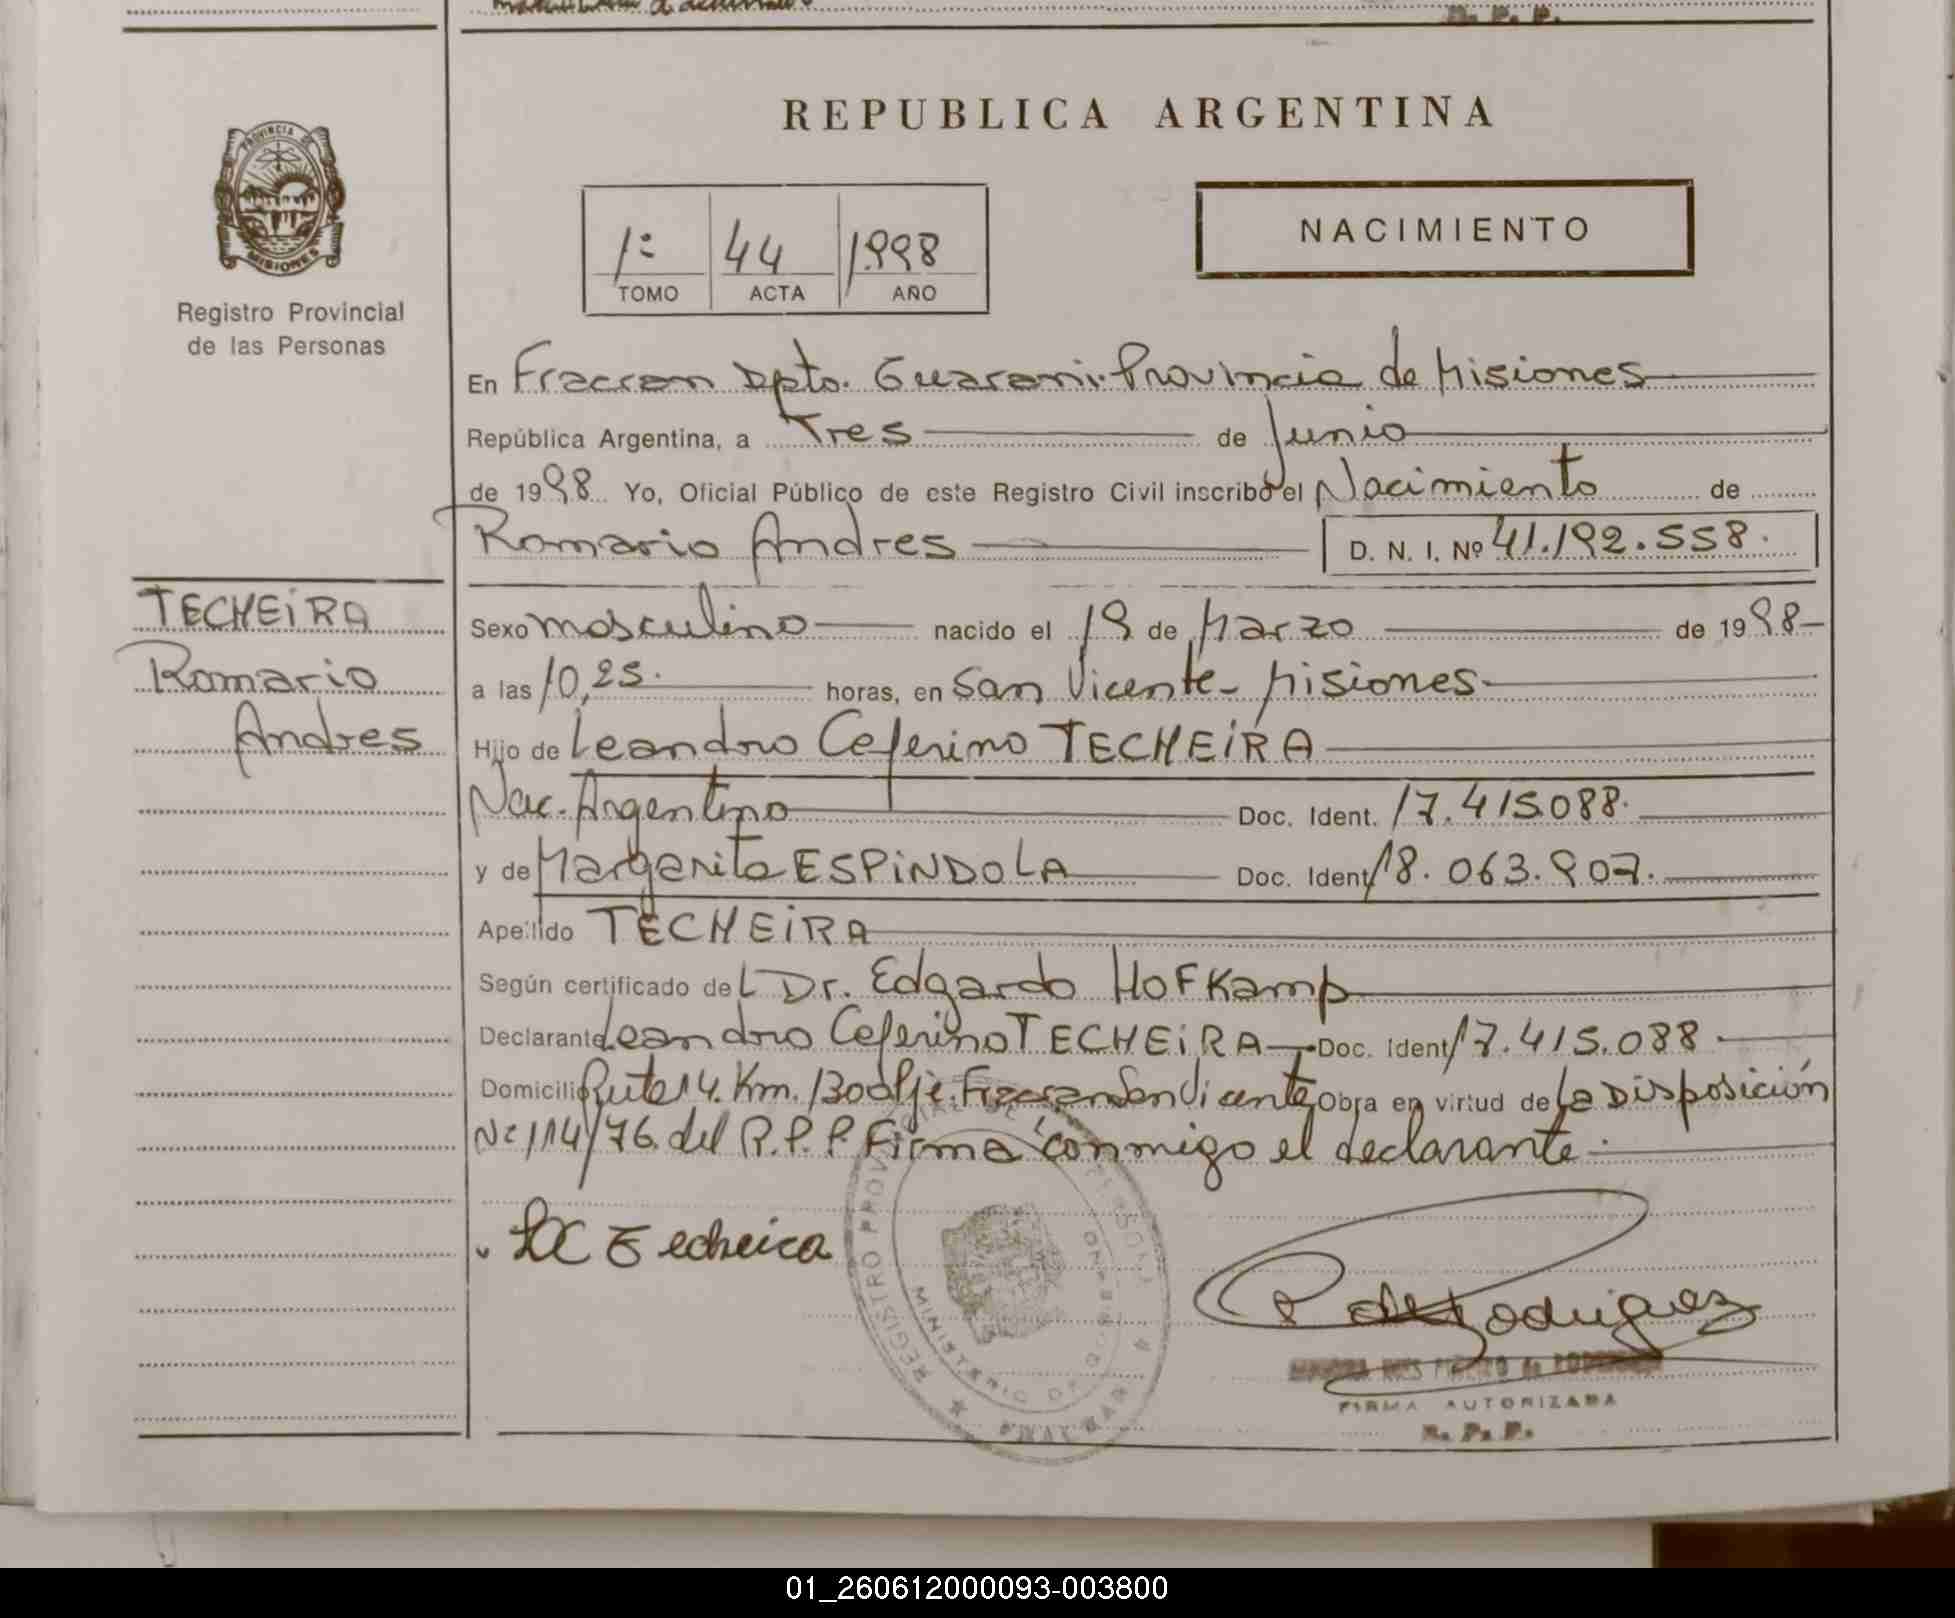 REPUBLICA ARGENTINA
PROVINCIA DE
MISIONES
Registro Provincial
de las Personas
1º 44 1.998
TOMO ACTA AÑO
NACIMIENTO
En Fracran Dpto. Guarani. Provincia de Misiones
República Argentina, a Tres de Junio
de 1998 Yo, Oficial Público de este Registro Civil inscribo el Nacimiento de
Romario Andres D. N. I. Nº 41.192.558.
TECHEiRA
Romario
Andres
Sexo masculino nacido el 19 de Marzo de 1998
a las 10,25. horas, en San Vicente - Misiones
Hijo de Leandro Ceferino TECHEiRA
Nac. Argentino Doc. Ident. 17.415.088.
y de Margarita ESPiNDOLA Doc. Ident 18.063.907.
Apellido TECHEiRA
Según certificado del Dr. Edgardo HOFKamp
Declarante Leandro Ceferino TECHEiRA Doc. Ident 17.415.088
Domicilio Ruta 14. Km. 130 Obra en virtud de La Disposición
Nº 114/76 del R.P.P. Firma conmigo el declarante
LC Techeira
REGISTRO PROVINCIAL DE LAS PERSONAS
MINISTERIO DE GOBIERNO
Rodriguez
FIRMA AUTORIZADA
R. P. P.
01_260612000093-003800